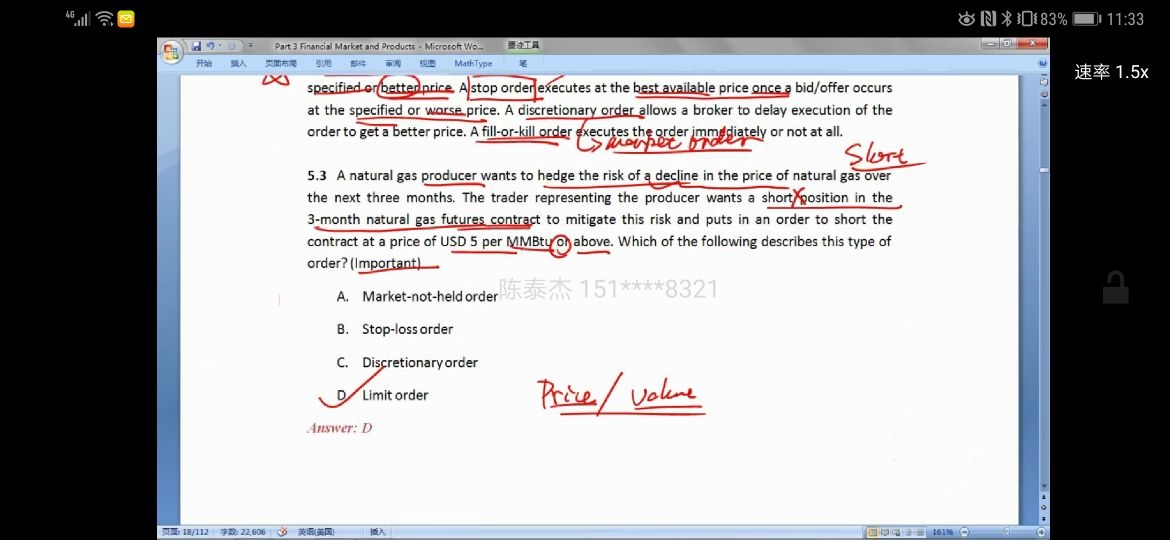 4G 83% 11:33
Part 3 Financial Market and Products - Microsoft Wo... 墨迹工具
开始 插入 页面布局 引用 邮件 审阅 视图 MathType 笔
速率 1.5x
specified or better price. A stop order executes at the best available price once a bid/offer occurs
at the specified or worse price. A discretionary order allows a broker to delay execution of the
order to get a better price. A fill-or-kill order executes the order immediately or not at all.
market order
Short
5.3 A natural gas producer wants to hedge the risk of a decline in the price of natural gas over
the next three months. The trader representing the producer wants a short position in the
3-month natural gas futures contract to mitigate this risk and puts in an order to short the
contract at a price of USD 5 per MMBtu or above. Which of the following describes this type of
order? (Important)
陈泰杰 151****8321
A. Market-not-held order
B. Stop-loss order
C. Discretionary order
D. Limit order
Price / volume
Answer: D
页面: 18/112 字数: 22,606 英语(美国) 插入 161%